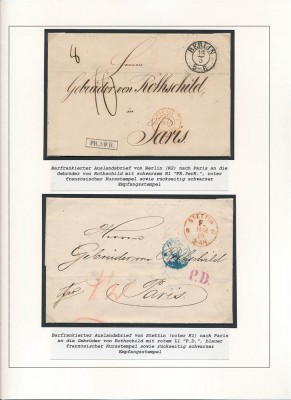 BERLIN
Herren
Gebrüder von Rothschild,
Paris
PR.30R.
Barfrankierter Auslandsbrief von Berlin (K2) nach Paris an die
Gebrüder von Rothschild mit schwarzem R1 "PR.30R.", roter
französischer Kursstempel sowie rückseitig schwarzer
Empfangsstempel
STETTIN
Herren
Gebrüder von Rothschild
P.D.
Paris
Barfrankierter Auslandsbrief von Stettin (roter K1) nach Paris
an die Gebrüder von Rothschild mit rotem L1 "P.D.", blauer
französischer Kursstempel sowie rückseitig schwarzer
Empfangsstempel